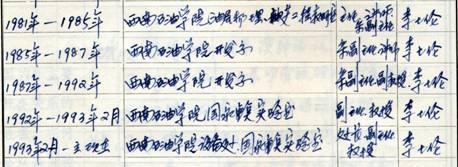 1981年—1985年 西南石油学院 主任 讲师 李士伦
1985年—1987年 西南石油学院开发系 系副主任 讲师 李士伦
1987年—1992年 西南石油学院开发系 系副主任 副教授 李士伦
1992年—1993年2月 西南石油学院,国家重点实验室 副主任 教授 李士伦
1993年2月—至现在 西南石油学院设备处,国家重点实验室 处长 副主任 教授 李士伦